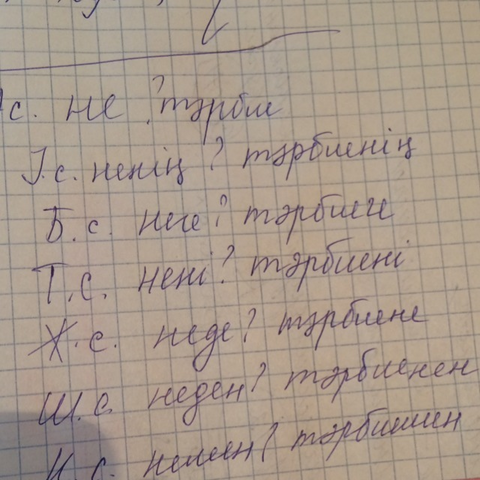 с. не? тәрбие
І.с. ненің? тәрбиенің
Б.с. неге? тәрбиеге
Т.с. нені? тәрбиені
Ж.с. неде? тәрбиене
Ш.с. неден? тәрбиенен
К.с. немен? тәрбиемен